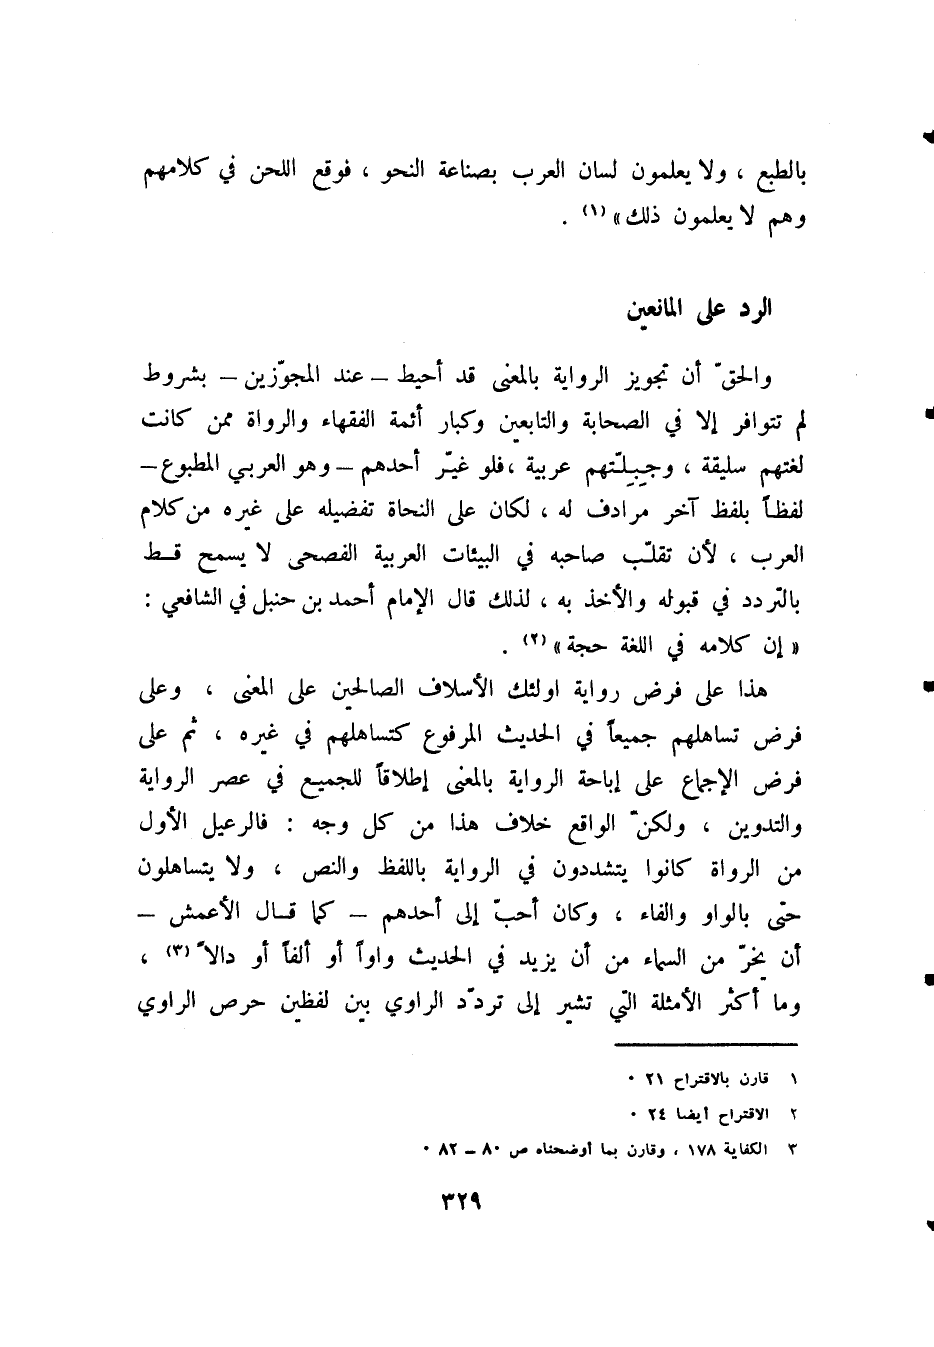 بالطبع ، ولا يعلمون لسان العرب بصناعة النحو ، فوقع اللحن في كلامهم
وهم لا يعلمون ذلك» (١) .
الرد على المانعين
والحقّ أن تجويز الرواية بالمعنى قد أحيط – عند المجوّزين – بشروط
لم تتوافر إلا في الصحابة والتابعين وكبار أئمة الفقهاء والرواة ممن كانت
لغتهم سليقة ، وجِبِلّتهم عربية ، فلو غيّر أحدهم – وهو العربي المطبوع –
لفظاً بلفظ آخر مرادف له ، لكان على النحاة تفضيله على غيره من كلام
العرب ، لأن تقلّب صاحبه في البيئات العربية الفصحى لا يسمح قط
بالتردد في قبوله والأخذ به ، لذلك قال الإمام أحمد بن حنبل في الشافعي :
« إن كلامه في اللغة حجة» (٢) .
هذا على فرض رواية اولئك الأسلاف الصالحين على المعنى ، وعلى
فرض تساهلهم جميعاً في الحديث المرفوع كتساهلهم في غيره ، ثم على
فرض الإجماع على إباحة الرواية بالمعنى إطلاقاً للجميع في عصر الرواية
والتدوين ، ولكنّ الواقع خلاف هذا من كل وجه : فالرعيل الأول
من الرواة كانوا يتشددون في الرواية باللفظ والنص ، ولا يتساهلون
حتى بالواو والفاء ، وكان أحبّ إلى أحدهم – كما قال الأعمش –
أن يخرّ من السماء من أن يزيد في الحديث واواً أو ألفاً أو دالاً (٣) ،
وما أكثر الأمثلة التي تشير إلى تردّد الراوي بين لفظين حرص الراوي
١ قارن بالاقتراح ٢١ .
٢ الاقتراح أيضا ٢٤ .
٣ الكفاية ١٧٨ ، وقارن بما أوضحناه ص ٨٠ – ٨٢ .
٣٢٩